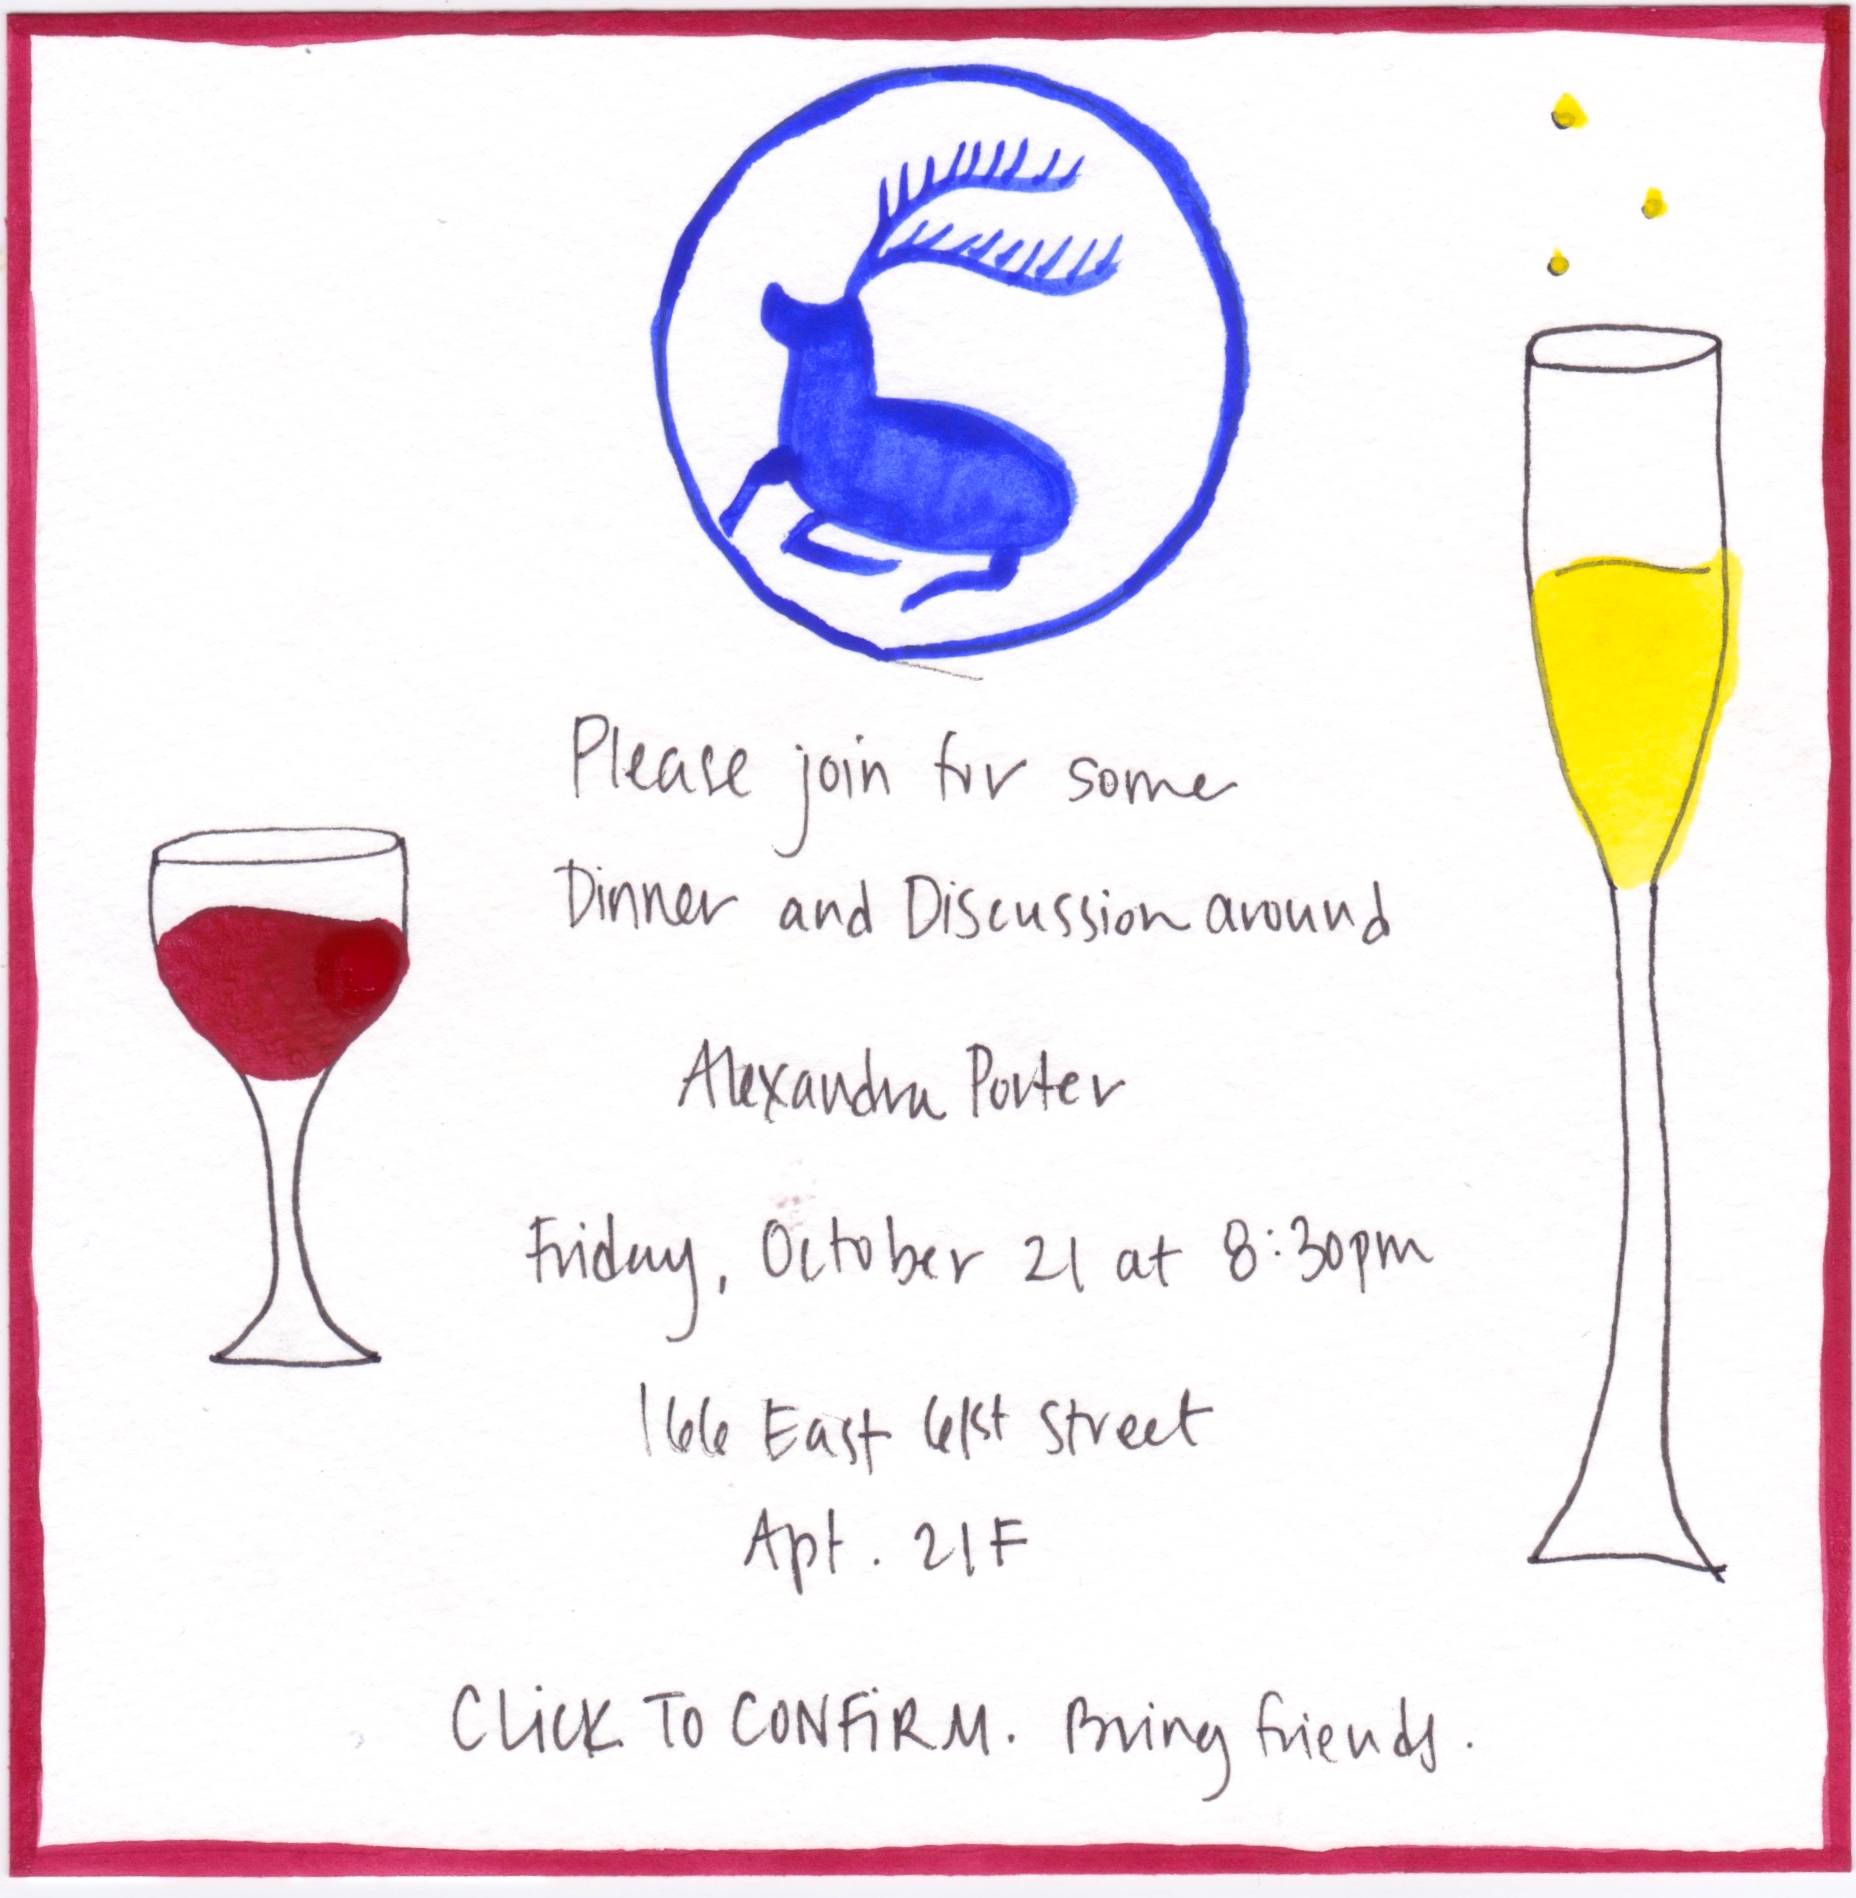 Please join for some
Dinner and Discussion around
Alexandra Porter
Friday, October 21 at 8:30pm
166 East 61st Street
Apt. 21F
CLiCK TO CONFiRM. Bring friends.